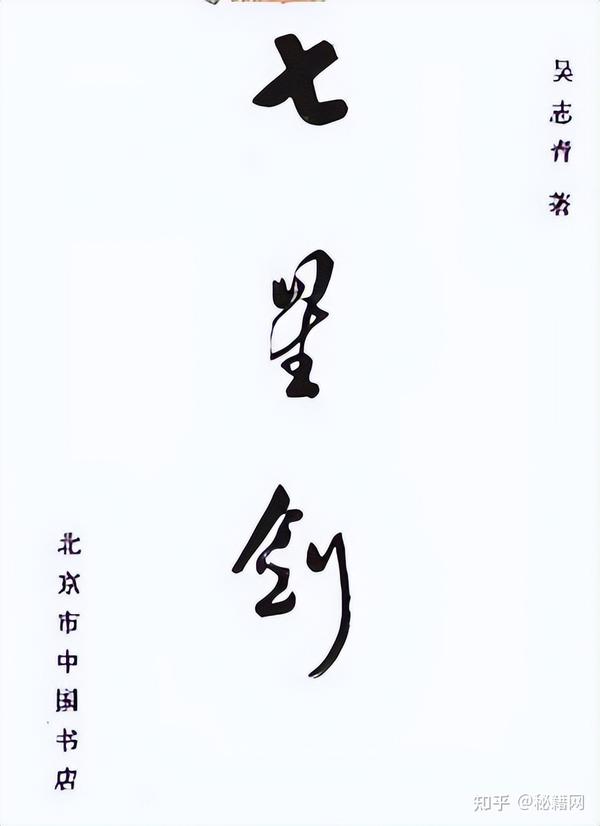 吴志青 著
七星剑
北京市中国书店
知乎 @秘籍网